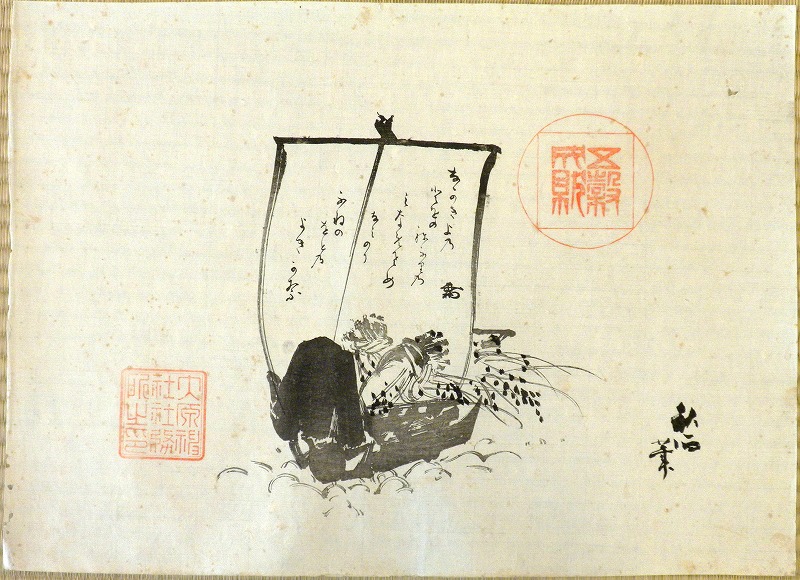 五穀
なかきよの
とをの
ねふりの
みなめさめ
なみのり
ふねの
をとの
よきかな
筆
大原神
社社務
所之印